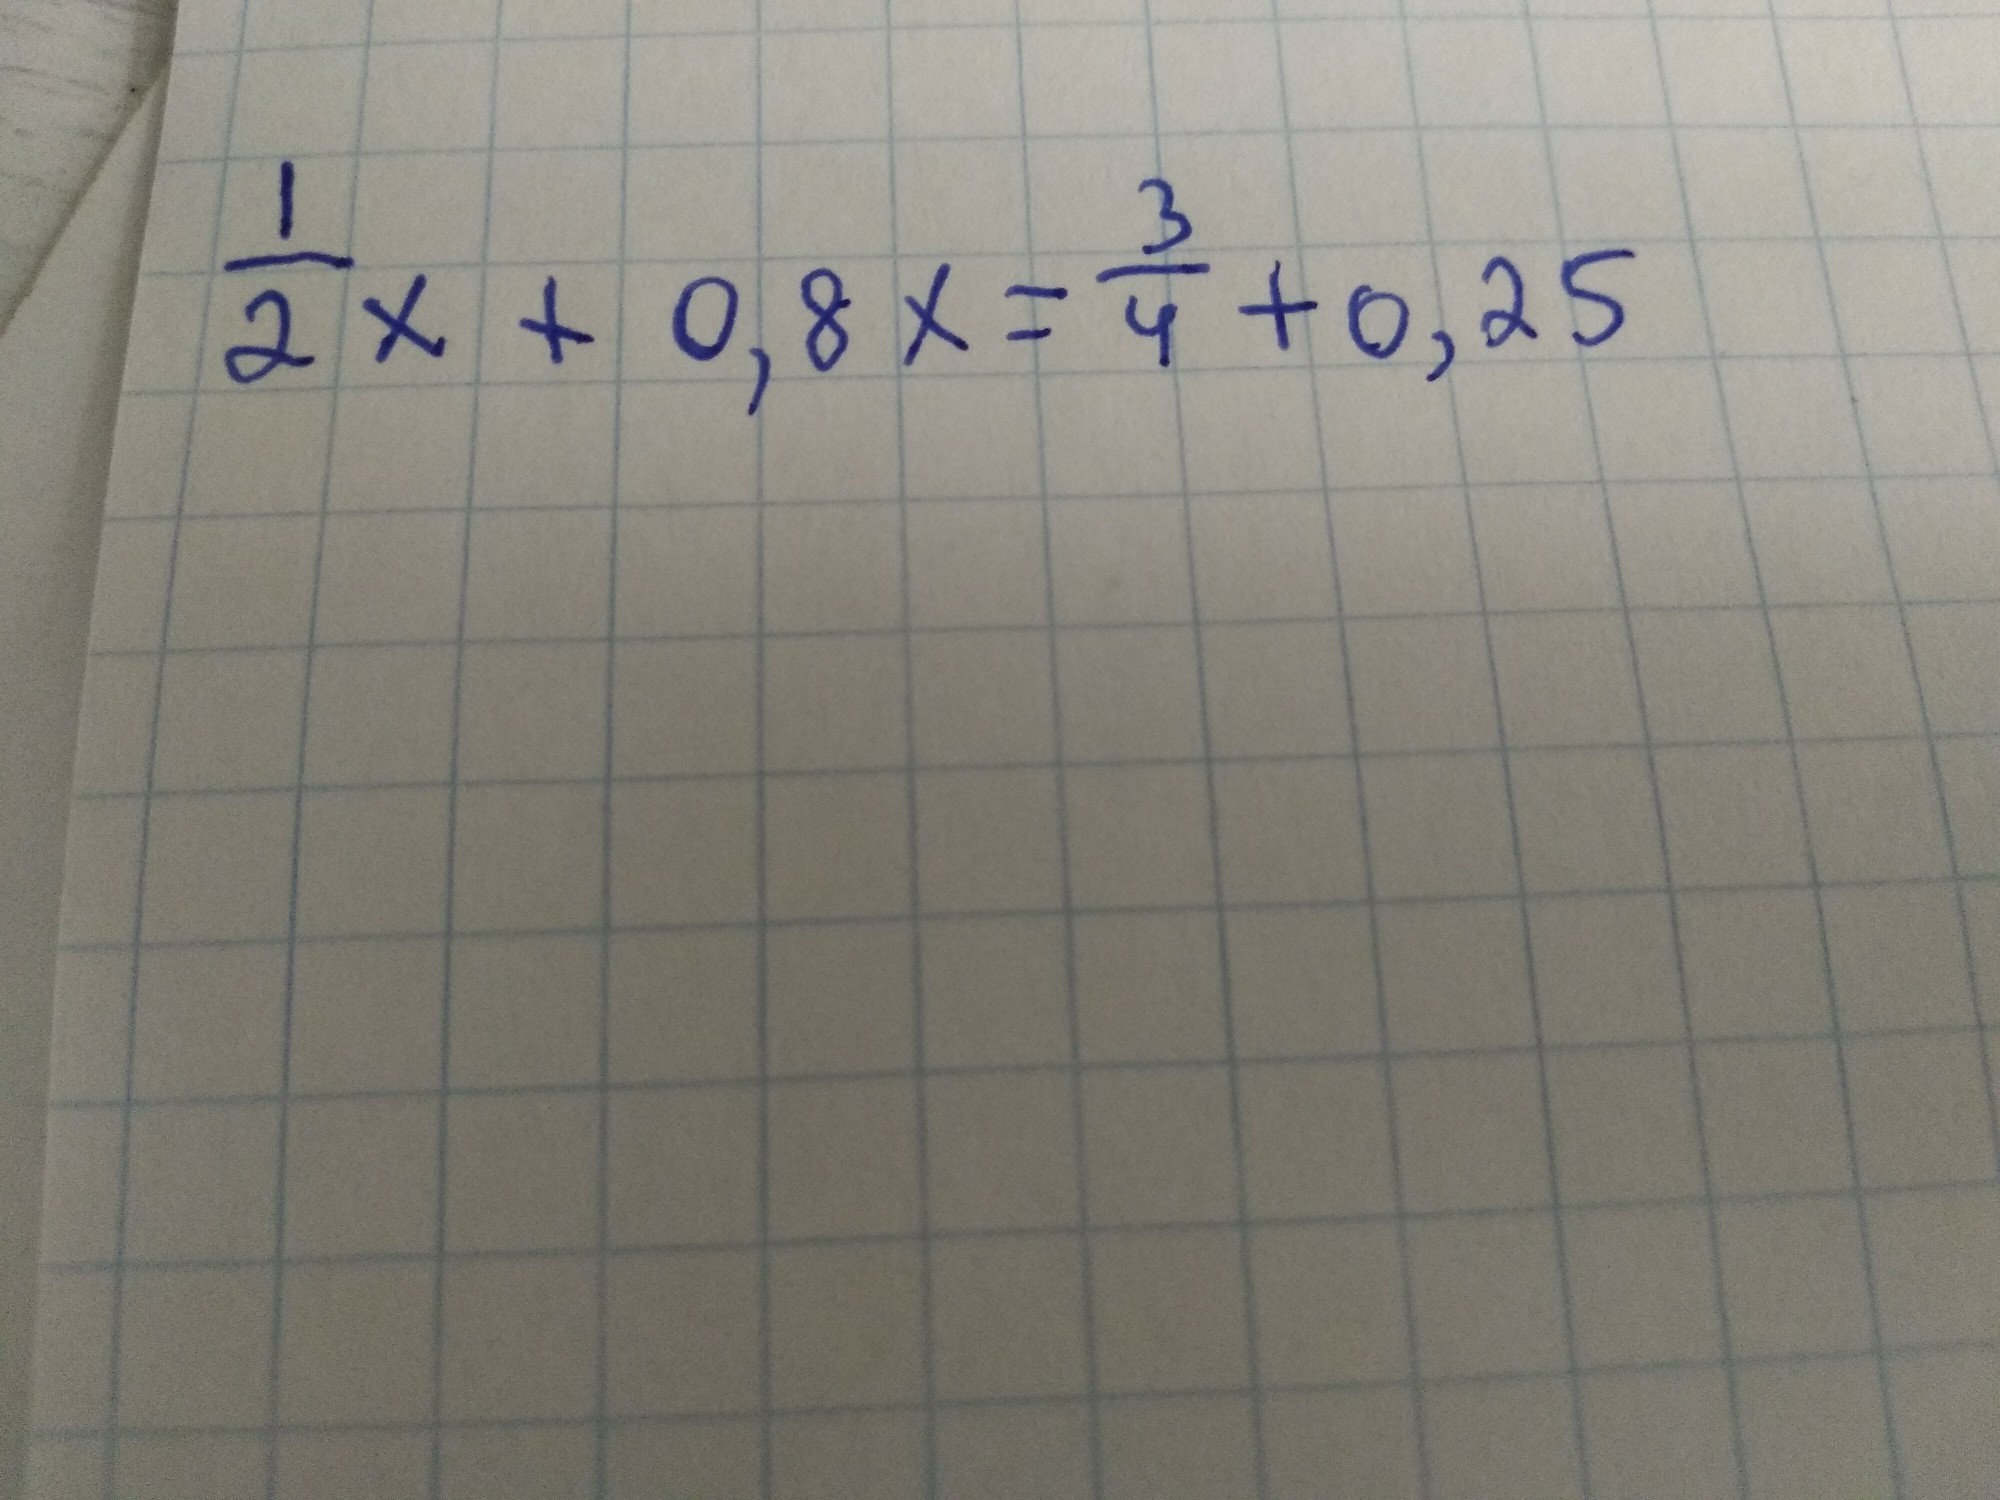 1/2 x + 0,8x = 3/4 + 0,25